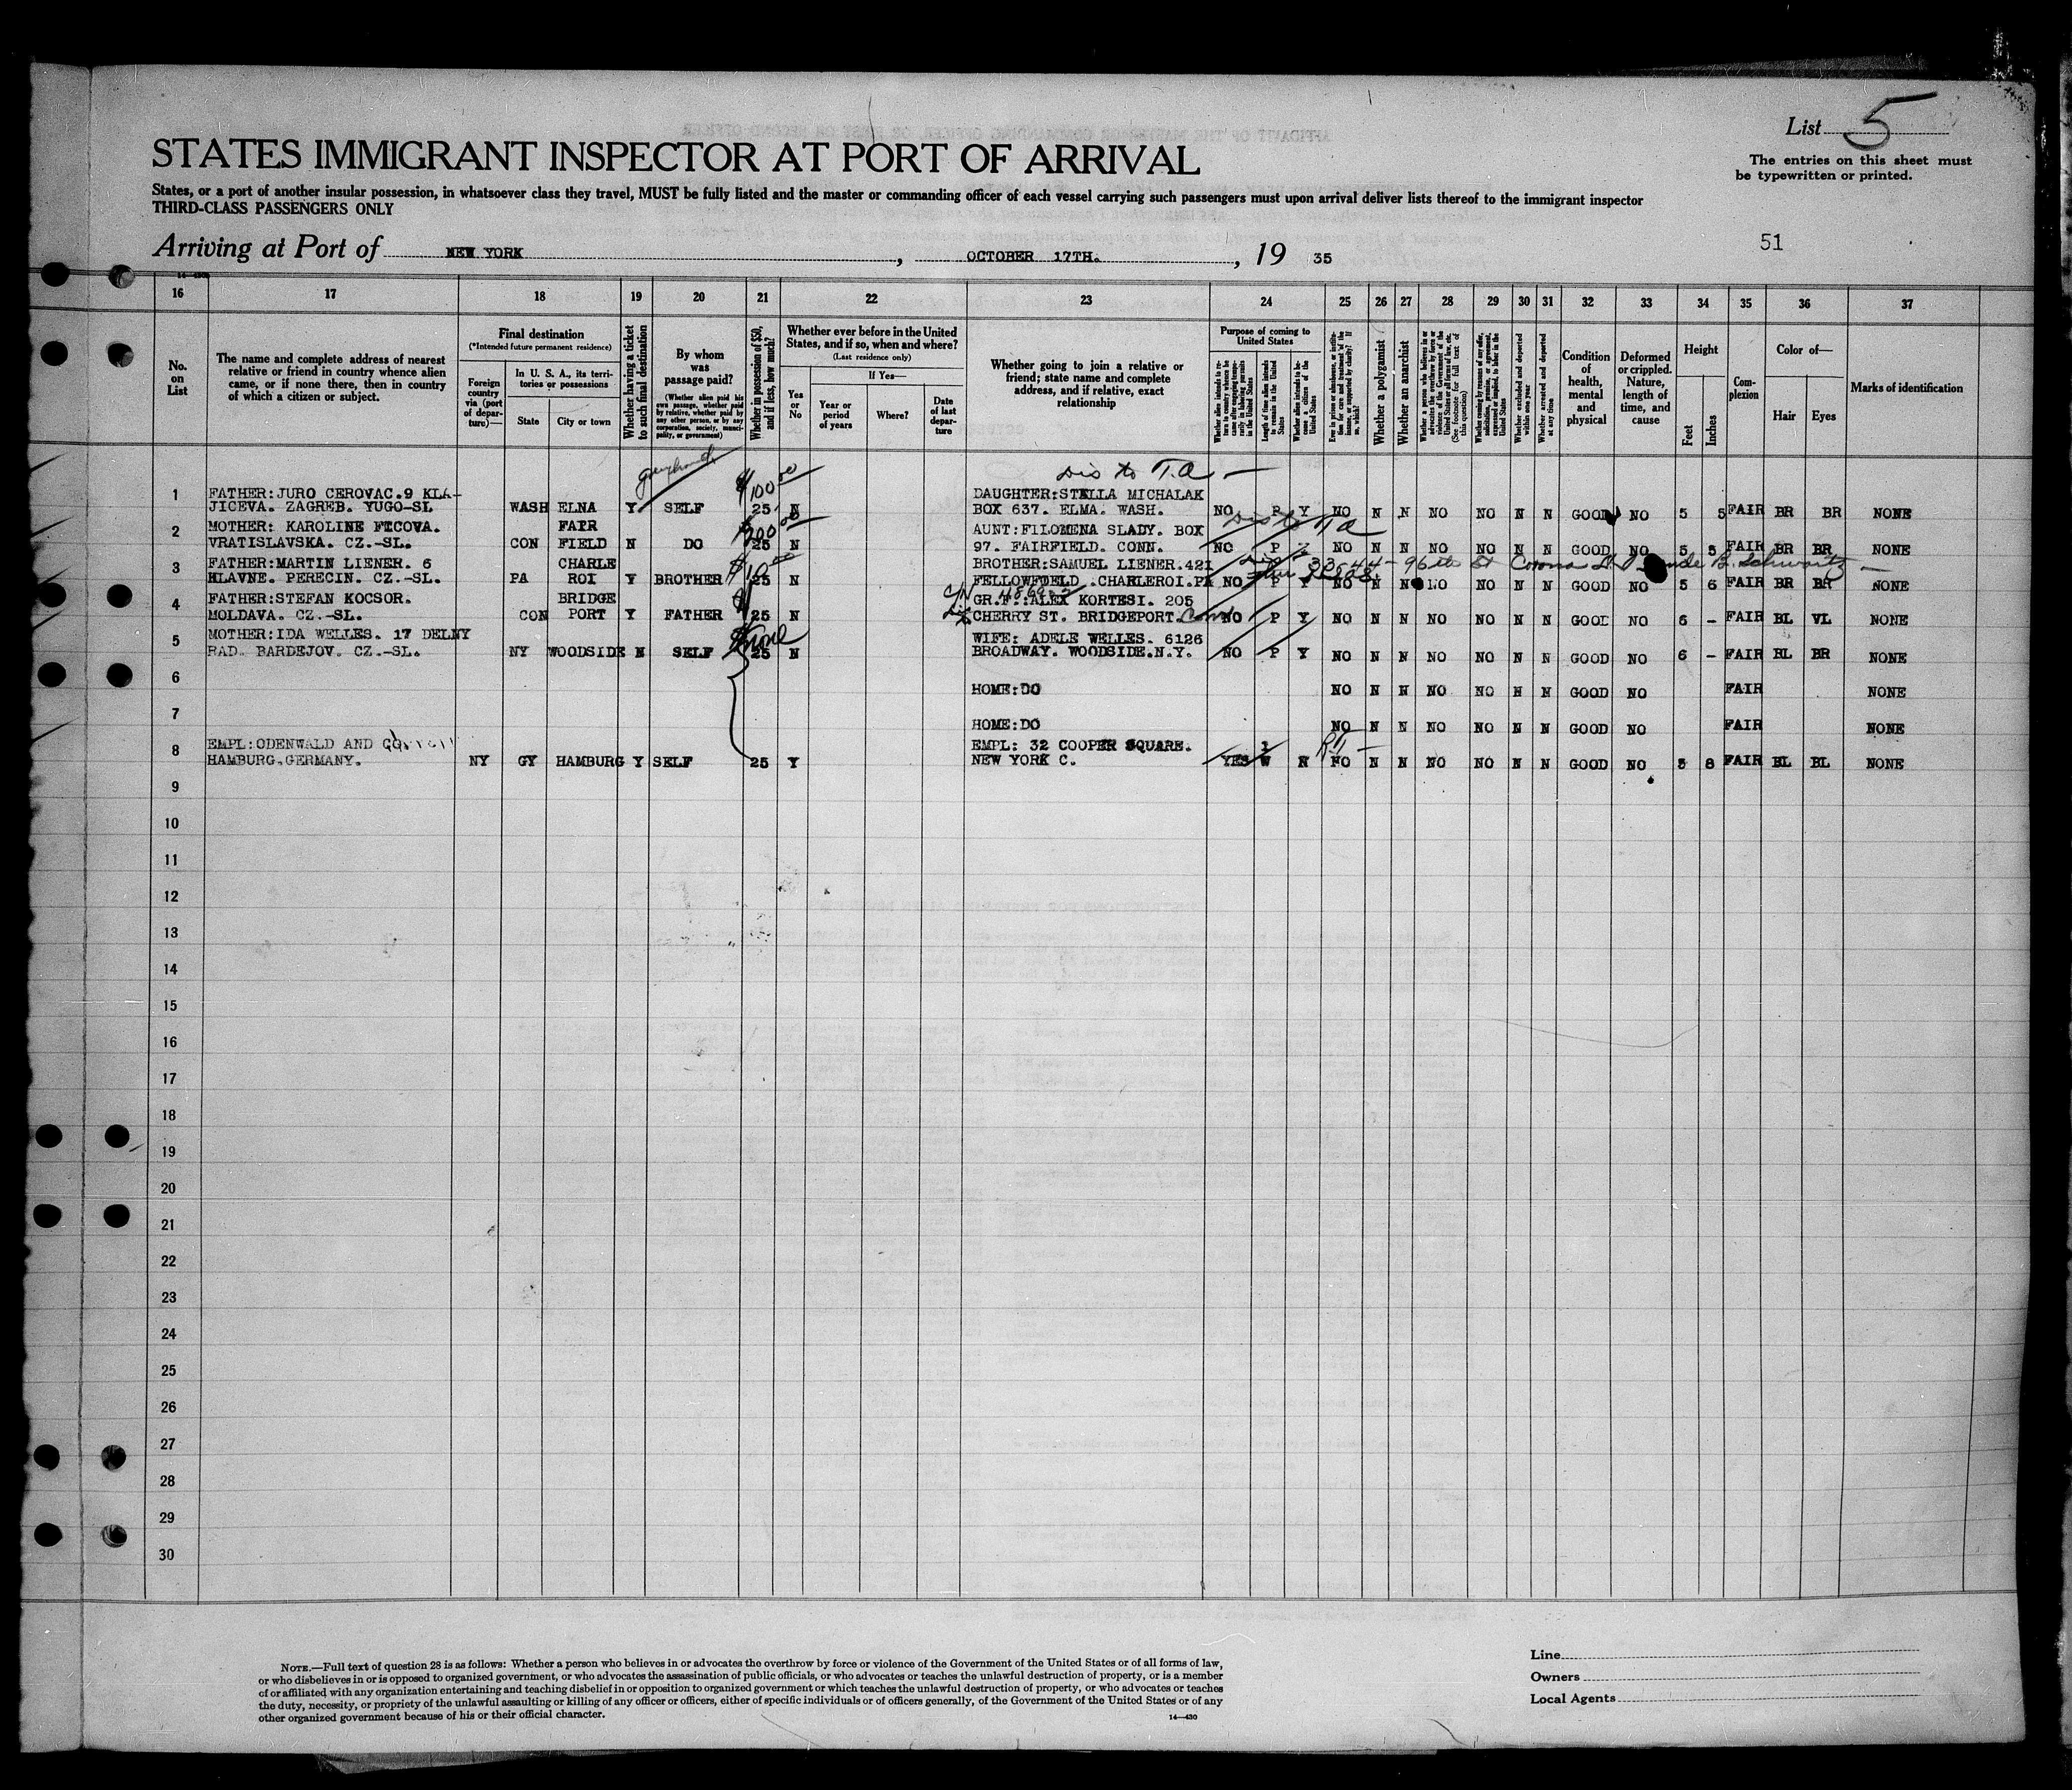 List 5
The entries on this sheet must
be typewritten or printed.
STATES IMMIGRANT INSPECTOR AT PORT OF ARRIVAL
States, or a port of another insular possession, in whatsoever class they travel, MUST be fully listed and the master or commanding officer of each vessel carrying such passengers must upon arrival deliver lists thereof to the immigrant inspector
THIRD-CLASS PASSENGERS ONLY
51
Arriving at Port of NEW YORK, OCTOBER 17TH., 19 35
16 17 18 19 20 21 22 23 24 25 26 27 28 29 30 31 32 33 34 35 36 37
No. on List
The name and complete address of nearest
relative or friend in country whence alien
came, or if none there, then in country
of which a citizen or subject.
Final destination
(*Intended future permanent residence)
Foreign country via (port of departure)—
In U. S. A., its territories or possessions
State
City or town
Whether having a ticket to such final destination
By whom was passage paid?
(Whether alien paid his own passage, whether paid by relative, whether paid by any other person, or by any corporation, society, municipality, or government)
Whether in possession of $50, and if less, how much?
Whether ever before in the United
States, and if so, when and where?
(Last residence only)
Yes or No
If Yes—
Year or period of years
Where?
Date of last departure
Whether going to join a relative or
friend; state name and complete
address, and if relative, exact
relationship
Purpose of coming to United States
Length of time alien intends to remain in the United States
Whether alien intends to become a citizen of the United States
Whether a polygamist
Whether an anarchist
Whether excluded and deported within one year
Whether arrested and deported at any time
Condition of health, mental and physical
Deformed or crippled. Nature, length of time, and cause
Height
Feet
Inches
Complexion
Color of—
Hair
Eyes
Marks of identification
greyhound
$100.00
Dis to T.A —
1 FATHER:JURO CEROVAC.9 KLA- DAUGHTER:STELLA MICHALAK
JICEVA. ZAGREB. YUGO-SL WASH ELNA Y SELF 25 N BOX 637. ELMA. WASH. NO P Y NO N N NO NO N N GOOD NO 5 5 FAIR BR BR NONE
2 MOTHER: KAROLINE FICOVA. FAIR AUNT:FILOMENA SLADY. BOX Dis to T.A
VRATISLAVSKA. CZ.-SL. CON FIELD N DO 25 N 97. FAIRFIELD. CONN. NO P NO N N NO NO N N GOOD NO 5 5 FAIR BR BR NONE
3 FATHER:MARTIN LIENER. 6 CHARLE BROTHER:SAMUEL LIENER.421 96th St Corona B. Schwartz —
HLAVNE. PERECIN. CZ.-SL. PA ROI Y BROTHER 25 N FELLOWFOELD .CHARLEROI.PA NO P Y NO N N NO NO N N GOOD NO 5 6 FAIR BR BR NONE
4 FATHER:STEFAN KOCSOR. BRIDGE GR.F.:ALEX KORTESI. 205
MOLDAVA. CZ.-SL. CON PORT Y FATHER 25 N CHERRY ST. BRIDGEPORT. Conn NO P Y NO N N NO NO N N GOOD NO 6 - FAIR BL VL NONE
5 MOTHER:IDA WELLES. 17 DELNY none WIFE: ADELE WELLES. 6126
RAD. BARDEJOV. CZ.-SL. NY WOODSIDE N SELF 25 N BROADWAY. WOODSIDE.N.Y. NO P Y NO N N NO NO N N GOOD NO 6 - FAIR BL BR NONE
6 HOME:DO NO N N NO NO N N GOOD NO FAIR NONE
7 HOME:DO NO N N NO NO N N GOOD NO FAIR NONE
8 EMPL:ODENWALD AND EMPL: 32 COOPER SQUARE.
HAMBURG,GERMANY. NY GY HAMBURG Y SELF 25 Y NEW YORK C. YES N NO N N NO NO N N GOOD NO 5 8 FAIR BL BL NONE
9
10
11
12
13
14
15
16
17
18
19
20
21
22
23
24
25
26
27
28
29
30
NOTE.—Full text of question 28 is as follows: Whether a person who believes in or advocates the overthrow by force or violence of the Government of the United States or of all forms of law,
or who disbelieves in or is opposed to organized government, or who advocates the assassination of public officials, or who advocates or teaches the unlawful destruction of property, or is a member
of or affiliated with any organization entertaining and teaching disbelief in or opposition to organized government or which teaches the unlawful destruction of property, or who advocates or teaches
the duty, necessity, or propriety of the unlawful assaulting or killing of any officer or officers, either of specific individuals or of officers generally, of the Government of the United States or of any
other organized government because of his or their official character.
14—430
Line
Owners
Local Agents